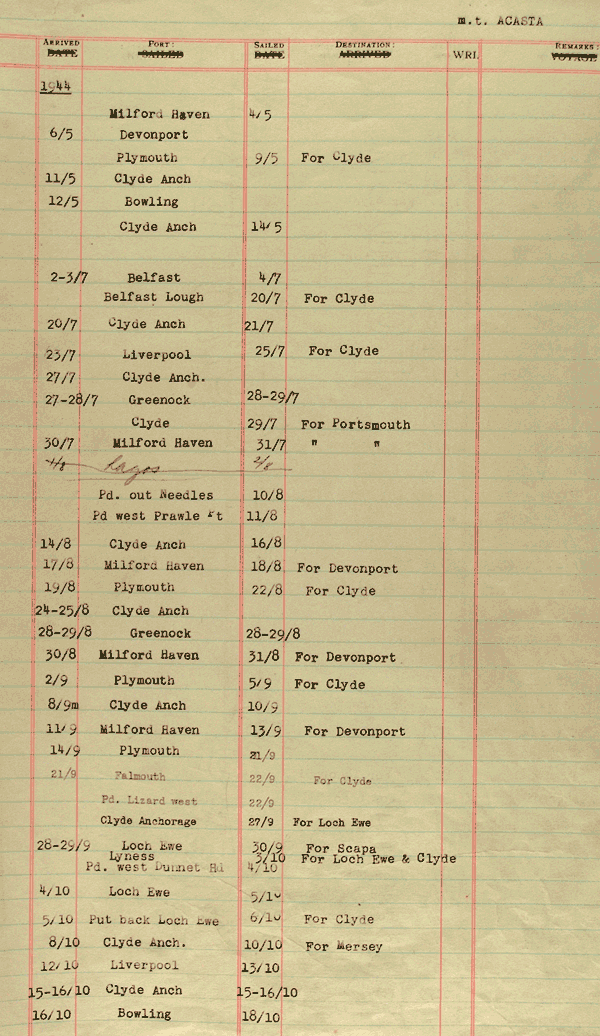 m.t. ACASTA
ARRIVED PORT: SAILED DESTINATION: REMARKS:
DATE SAILED DATE ARRIVED WRI. VOYAGE
1944
Milford Haven 4/5
6/5 Devonport
Plymouth 9/5 For Clyde
11/5 Clyde Anch
12/5 Bowling
Clyde Anch 14/5
2-3/7 Belfast 4/7
Belfast Lough 20/7 For Clyde
20/7 Clyde Anch 21/7
23/7 Liverpool 25/7 For Clyde
27/7 Clyde Anch.
27-28/7 Greenock 28-29/7
Clyde 29/7 For Portsmouth
30/7 Milford Haven 31/7 " "
Lagos 2/8
Pd. out Needles 10/8
Pd west Prawle Pt 11/8
14/8 Clyde Anch 16/8
17/8 Milford Haven 18/8 For Devonport
19/8 Plymouth 22/8 For Clyde
24-25/8 Clyde Anch
28-29/8 Greenock 28-29/8
30/8 Milford Haven 31/8 For Devonport
2/9 Plymouth 5/9 For Clyde
8/9m Clyde Anch 10/9
11/9 Milford Haven 13/9 For Devonport
14/9 Plymouth 21/9
21/9 Falmouth 22/9 For Clyde
Pd. Lizard west 22/9
Clyde Anchorage 27/9 For Loch Ewe
28-29/9 Loch Ewe 30/9 For Scapa
Lyness 3/10 For Loch Ewe & Clyde
Pd. west Dunnet Hd 4/10
4/10 Loch Ewe 5/10
5/10 Put back Loch Ewe 6/10 For Clyde
8/10 Clyde Anch. 10/10 For Mersey
12/10 Liverpool 13/10
15-16/10 Clyde Anch 15-16/10
16/10 Bowling 18/10